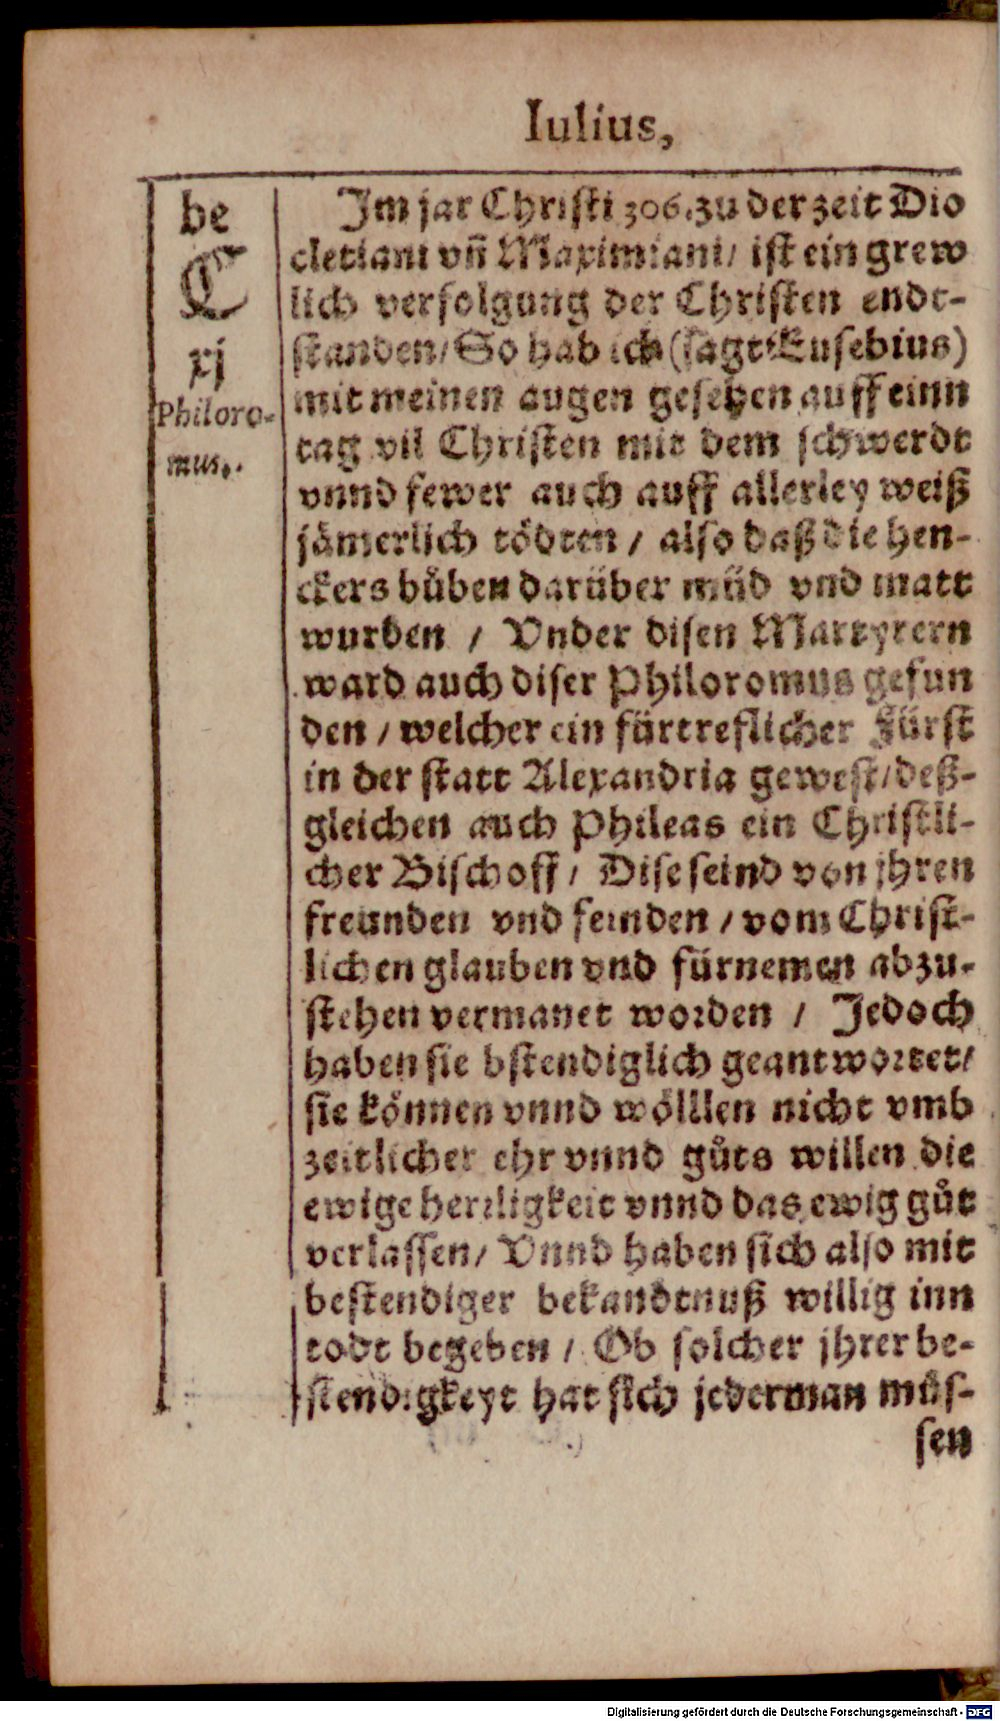 Iulius,
be
C
xj
Philoro-
mus.
Im jar Christi 306. zu der zeit Dio
cletiani vñ Maximiani / ist ein grew
lich verfolgung der Christen endt-
standen / So hab ich (sagt Eusebius)
mit meinen augen gesehen auff einn
tag vil Christen mit dem schwerdt
vnnd fewer auch auff allerley weiß
jämerlich tödten / also daß die hen-
ckers bůben darüber müd vnd matt
wurden / Vnder disen Martyrern
ward auch diser Philoromus gefun
den / welcher ein fürtreflicher Fürst
in der statt Alexandria gewest / deß-
gleichen auch Phileas ein Christli-
cher Bischoff / Dise seind von jhren
freunden vnd feinden / vom Christ-
lichen glauben vnd fürnemen abzu-
stehen vermanet worden / Jedoch
haben sie bstendiglich geantwortet /
sie können vnnd wölllen nicht vmb
zeitlicher ehr vnnd gůts willen die
ewige herrligkeit vnnd das ewig gůt
verlassen / Vnnd haben sich also mit
bestendiger bekandtnuß willig inn
todt begeben / Ob solcher jhrer be-
stendigkeyt hat sich jederman můs-
sen
Digitalisierung gefördert durch die Deutsche Forschungsgemeinschaft - DFG